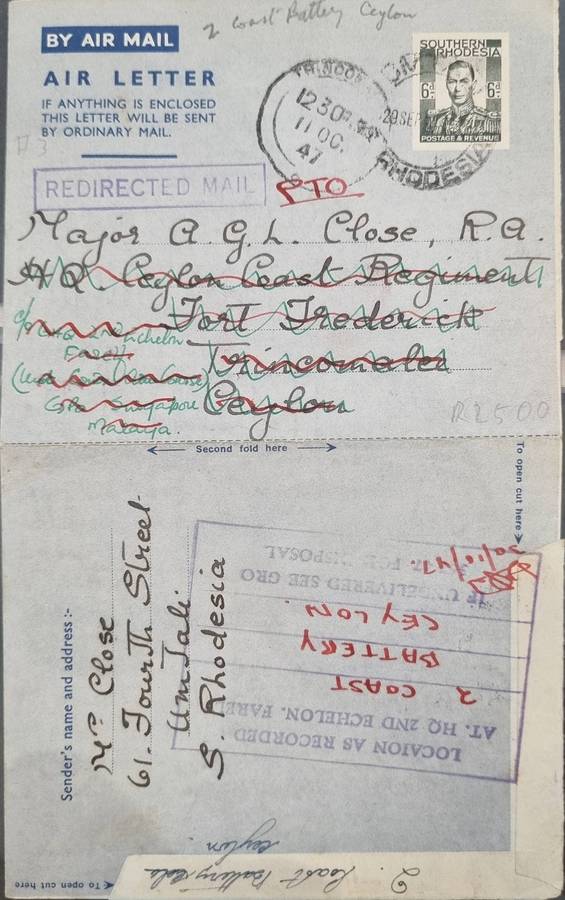 2 Coast Battery Ceylon
BY AIR MAIL
AIR LETTER
IF ANYTHING IS ENCLOSED
THIS LETTER WILL BE SENT
BY ORDINARY MAIL.
SOUTHERN
RHODESIA
6d. 6d.
POSTAGE & REVENUE
TRINCOM
12 30P.M
11 OC.
47
29 SEP
RHODESIA
REDIRECTED MAIL
PTO
Major A. G. L. Close, R.A.
H.Q. Ceylon Coast Regiment
Fort Frederick
Trincomalee
Ceylon
c/o HQ 2nd Echelon
Farelf
GPO Singapore
Malaya.
R2500
Second fold here
To open cut here
Sender's name and address :-
Mrs Close
61. Fourth Street
Umtali
S. Rhodesia
LOCATION AS RECORDED
AT. HQ 2ND ECHELON. FARELF
2 COAST
BATTERY
CEYLON.
IF UNDELIVERED SEE GRO
FOR DISPOSAL
20/10/47.
2. Coast Battery
Ceylon.
To open cut here